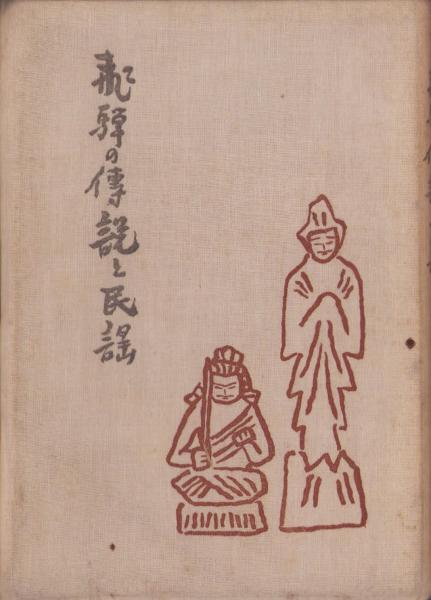 飛驒の傳說と民謠